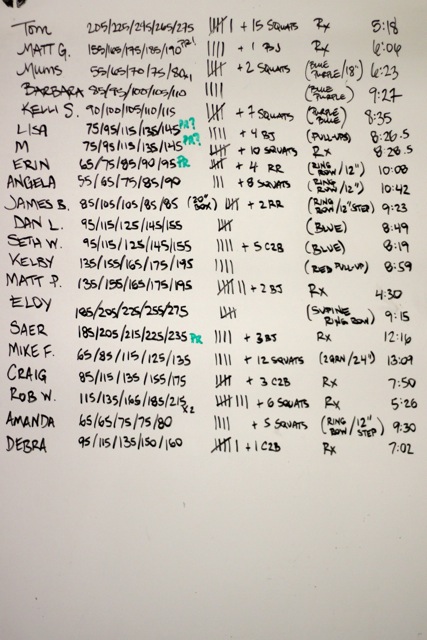 Tom 205/225/245/265/275 |||| | + 15 SQUATS Rx 5:18
MATT G. 155/165/175/185/190 |||| + 1 BJ Rx 6:06
Mums 55/65/70/75/80 |||| + 2 SQUATS (BLUE PURPLE/18") 6:23
BARBARA 85/95/100/105/110 |||| (BLUE PURPLE) 9:27
KELLI S. 90/100/105/110/115 + 7 SQUATS (PURPLE BLUE) 8:35
LISA 75/95/115/135/145 PR? |||| + 4 BJ (PULL-UPS) 8:26.5
M 75/95/115/135/145 PR? + 10 SQUATS Rx 8:28.5
ERIN 65/75/85/90/95 PR + 4 RR (RING ROW/12") 10:08
ANGELA 55/65/75/85/90 ||| + 8 SQUATS (RING ROW/12") 10:42
JAMES B. 85/105/105/85/85 (20" BOX) + 2 RR (RING ROW/12" STEP) 9:23
DAN L. 95/115/125/145/155 (BLUE) 8:49
SETH W. 95/115/125/145/155 |||| + 5 C2B (BLUE) 8:19
KELBY 135/155/165/175/195 |||| (RED PULL-UP) 8:59
MATT P. 135/155/165/175/195 + 2 BJ Rx 4:30
ELOY 185/205/225/255/275 (SUPINE RING ROW) 9:15
SAER 185/205/215/225/235 PR |||| + 3 BJ Rx 12:16
MIKE F. 65/85/115/125/135 |||| + 12 SQUATS (24") 13:09
CRAIG 85/115/135/155/175 + 3 C2B Rx 7:50
ROB W. 115/135/165/185/215 x2 + 6 SQUATS Rx 5:26
AMANDA 65/65/75/75/80 |||| + 5 SQUATS (RING ROW/12" STEP) 9:30
DEBRA 95/115/135/150/160 + 1 C2B Rx 7:02